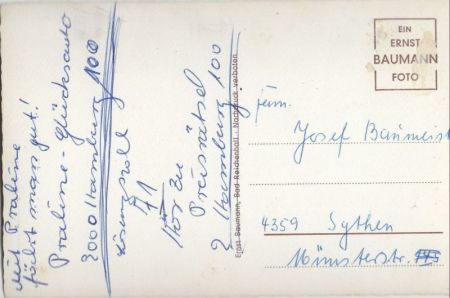 Mit Praline
fährt man gut!
Praline-Glücksauto
2000 Hamburg 100
Lösung soll
71
Hör Zu
Preisrätsel
2 Hamburg 100
Ernst Baumann, Bad Reichenhall - Nachdruck verboten
EIN
ERNST
BAUMANN
FOTO
Fam.
Josef Baumeist
4359 Sythen
Münsterstr.